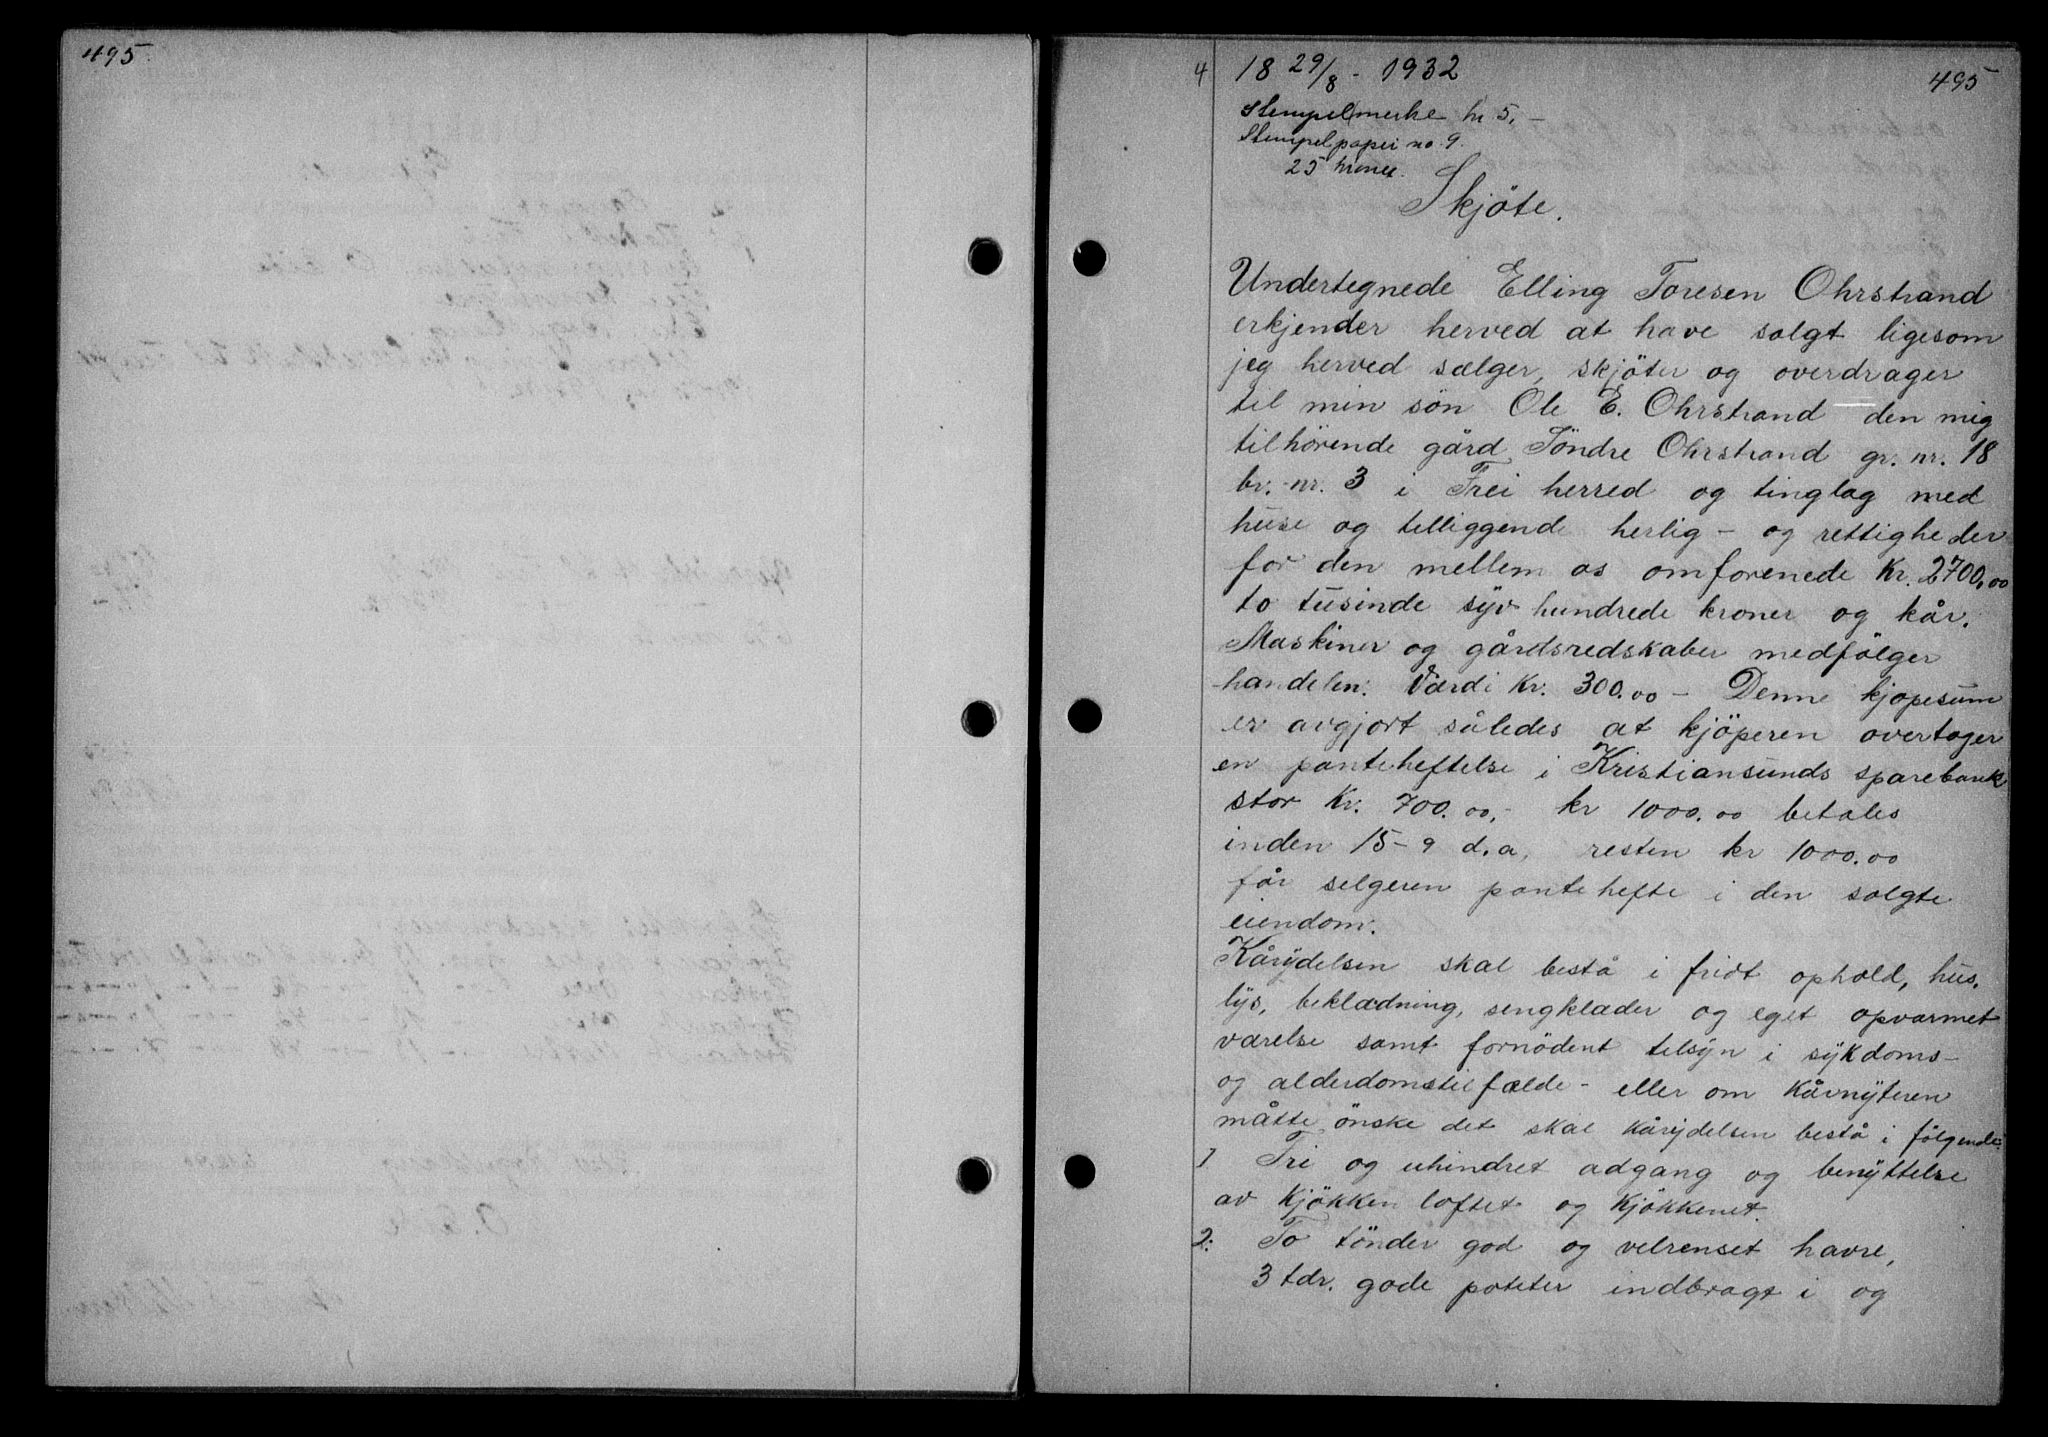 495
4 18 29/8 - 1932 495
Stempelmerke kr 5,-
Stempelpapir no. 9.
25 kroner.
Skjöte.
Undertegnede Elling Toresen Ohrstrand
erkjender herved at have solgt ligesom
jeg herved sælger, skjöter og overdrager
til min sön Ole E. Ohrstrand den mig
tilhörende gård Söndre Ohrstrand gr. nr. 18
br. nr. 3 i Frei herred og tinglag med
huse og tilliggende herlig- og rettigheder
for den mellem os omforenede Kr. 2700,00
to tusinde syv hundrede kroner og kår.
Maskiner og gårdsredskaber medfölger
handelen. Værdi Kr. 300.00 - Denne kjöpesum
er avgjort således at kjöperen overtager
en panteheftelse i Kristiansunds sparebank
stor Kr. 700.00,- kr 1000.00 betales
inden 15-9 d.a, resten kr 1000.00
får selgeren pantehefte i den solgte
eiendom.
Kårydelsen skal bestå i fridt ophold, hus,
lys, beklædning, sengklæder og eget opvarmet
værelse samt fornödent tilsyn i sykdoms-
og alderdomstilfælde - eller om kårnyteren
måtte önske det skal kårydelsen bestå i fölgende:
1 Fri og uhindret adgang og benyttelse
av kjökken loftet og kjökkenet.
2: To tönder god og velrenset havre,
3 tdr. gode poteter indbragt i og